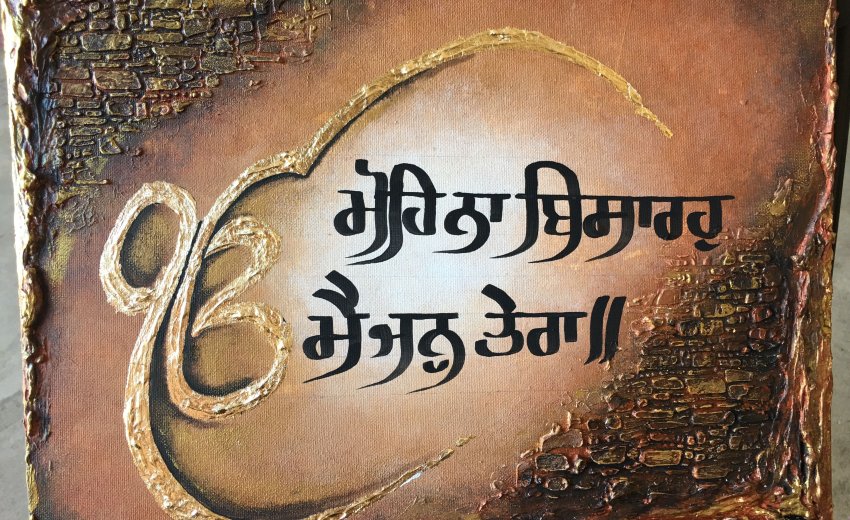 ੴ
ਮੋਹਿ ਨਾ ਬਿਸਾਰਹੁ
ਮੈ ਜਨੁ ਤੇਰਾ॥